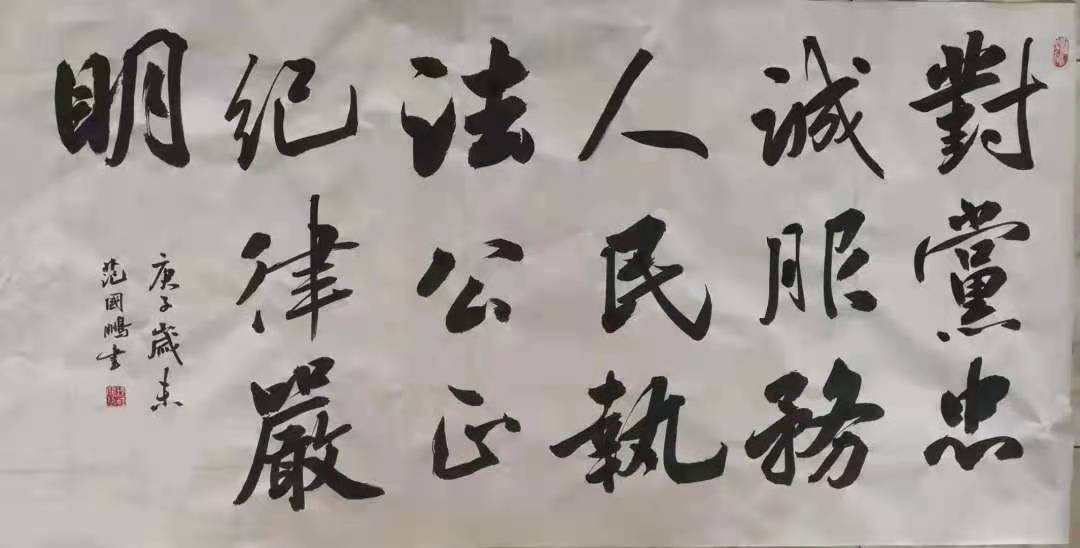 對黨忠
誠服務
人民執
法公正
紀律嚴
明
庚子歲末
范國鵬书